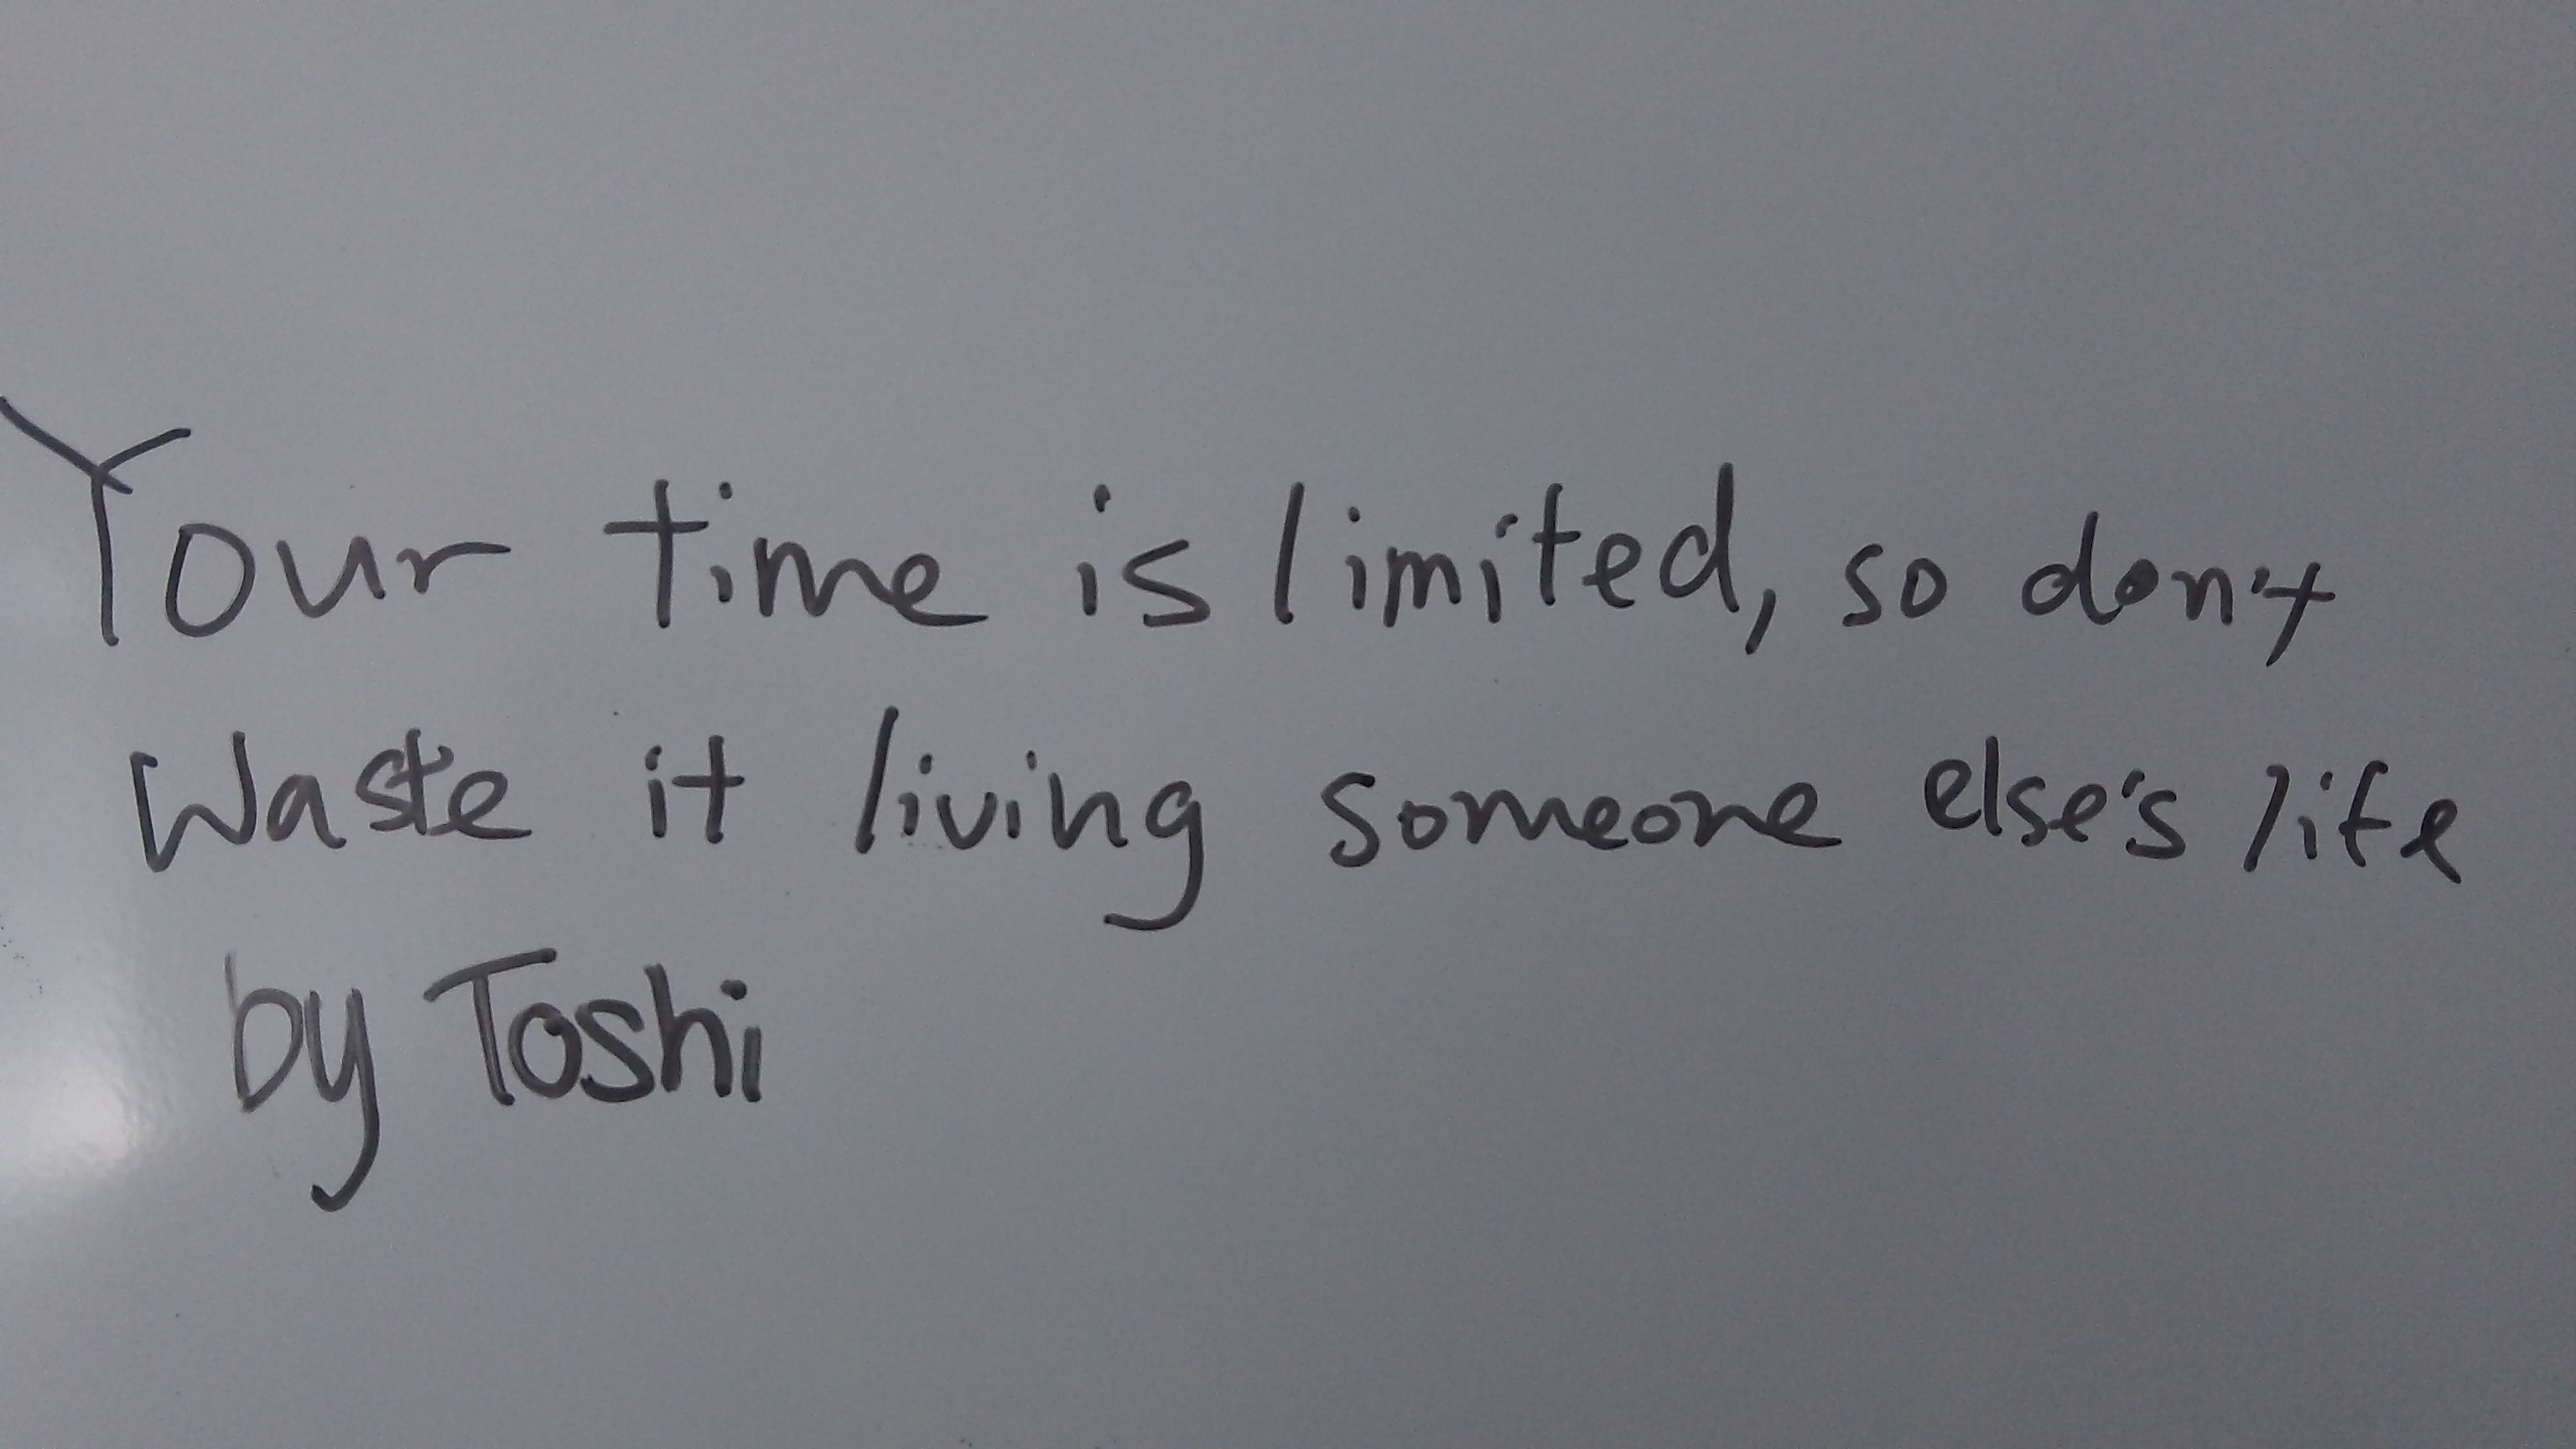 Your time is limited, so don't
Waste it living someone else's life
by Toshi